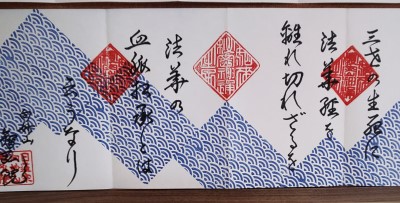 三世の生死に
法華経を
離れ切れざるを
法華の
血脈相承とは
云うなり